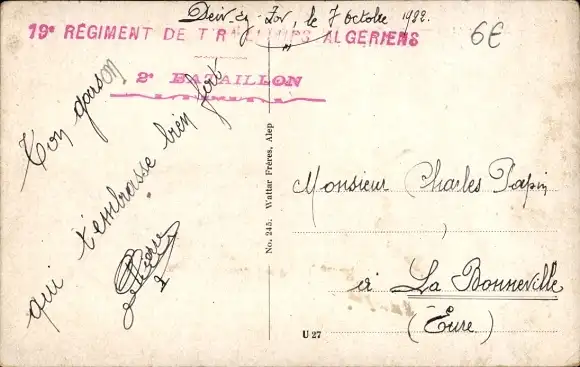 Deir-ez-Zor, le 7 octobre 1922.
19e RÉGIMENT DE TIRAILLEURS ALGÉRIENS
6€
2e BATAILLON
Ton garson
qui t'embrasse bien fort
No. 245. Wattar Frères, Alep
Monsieur Charles Papin
à La Bonneville
(Eure)
U 27